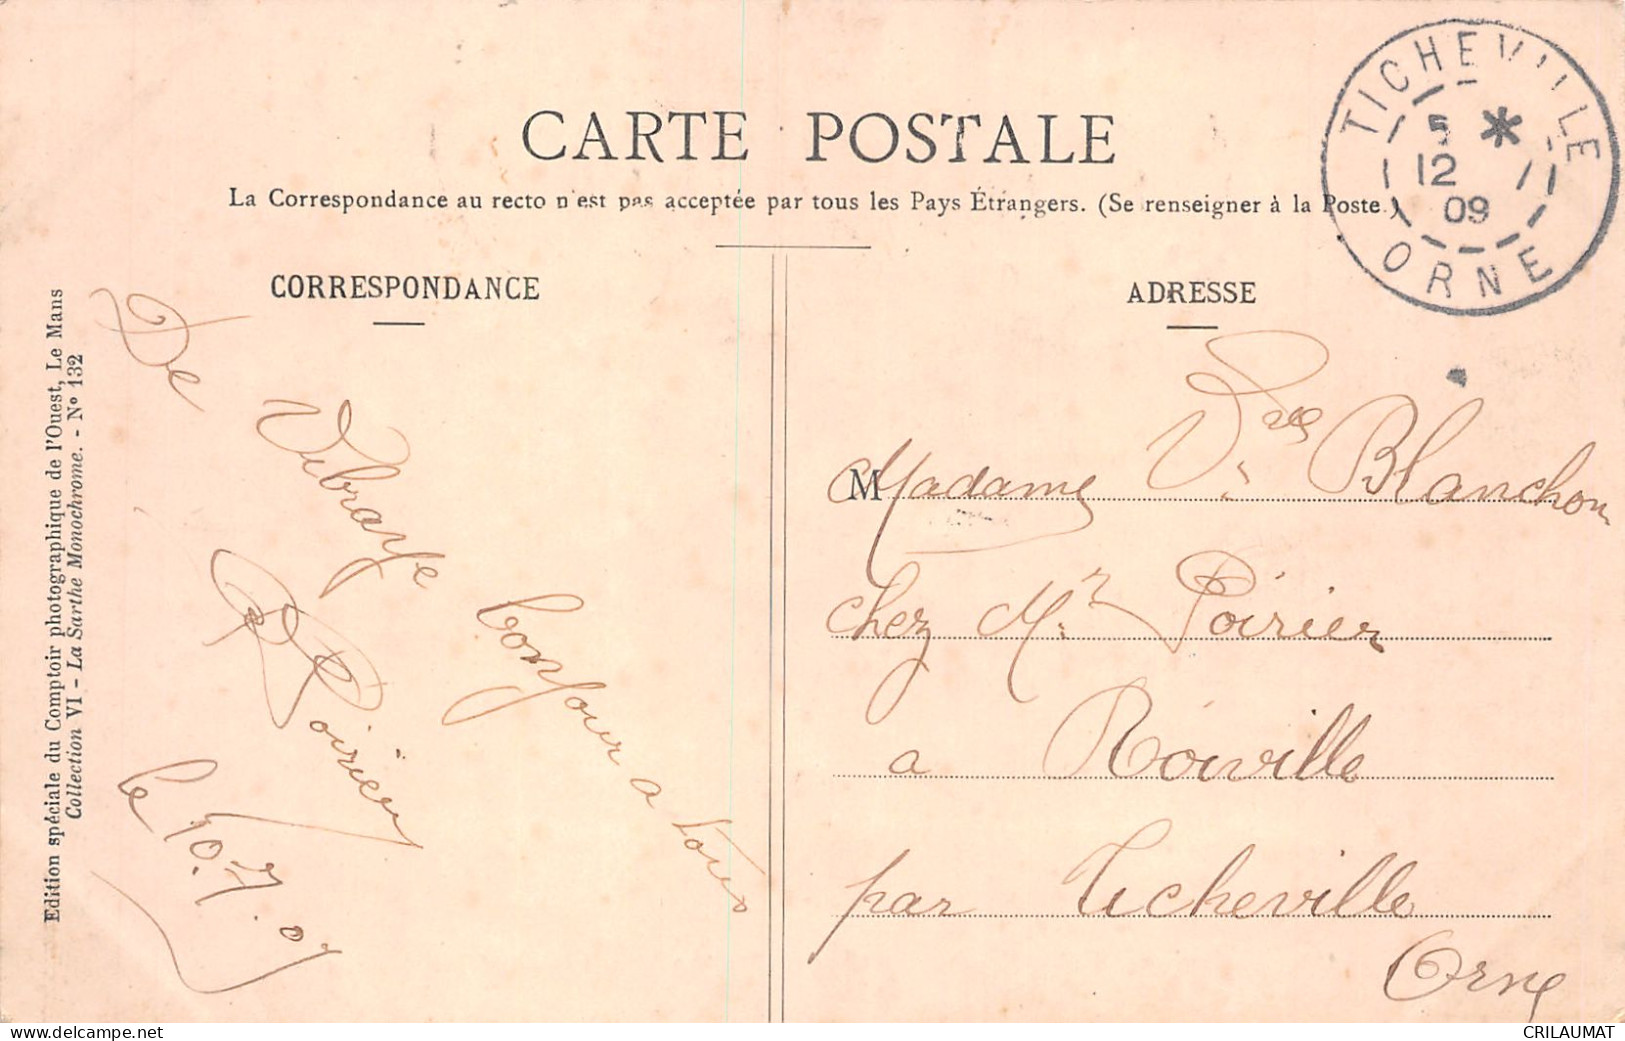 CARTE POSTALE
La Correspondance au recto n'est pas acceptée par tous les Pays Étrangers. (Se renseigner à la Poste.)
TICHEVILLE
5 *
12
09
ORNE
CORRESPONDANCE
De Vibraye bonjour a tous
Poirier
le 10.7.07
ADRESSE
Madame Vve Blanchon
chez Mr Poirier
a Roiville
par Ticheville
Orne
Edition spéciale du Comptoir photographique de l'Ouest, Le Mans
Collection VI - La Sarthe Monochrome. - No 132
https://www.delcampe.net
CRILAUMAT